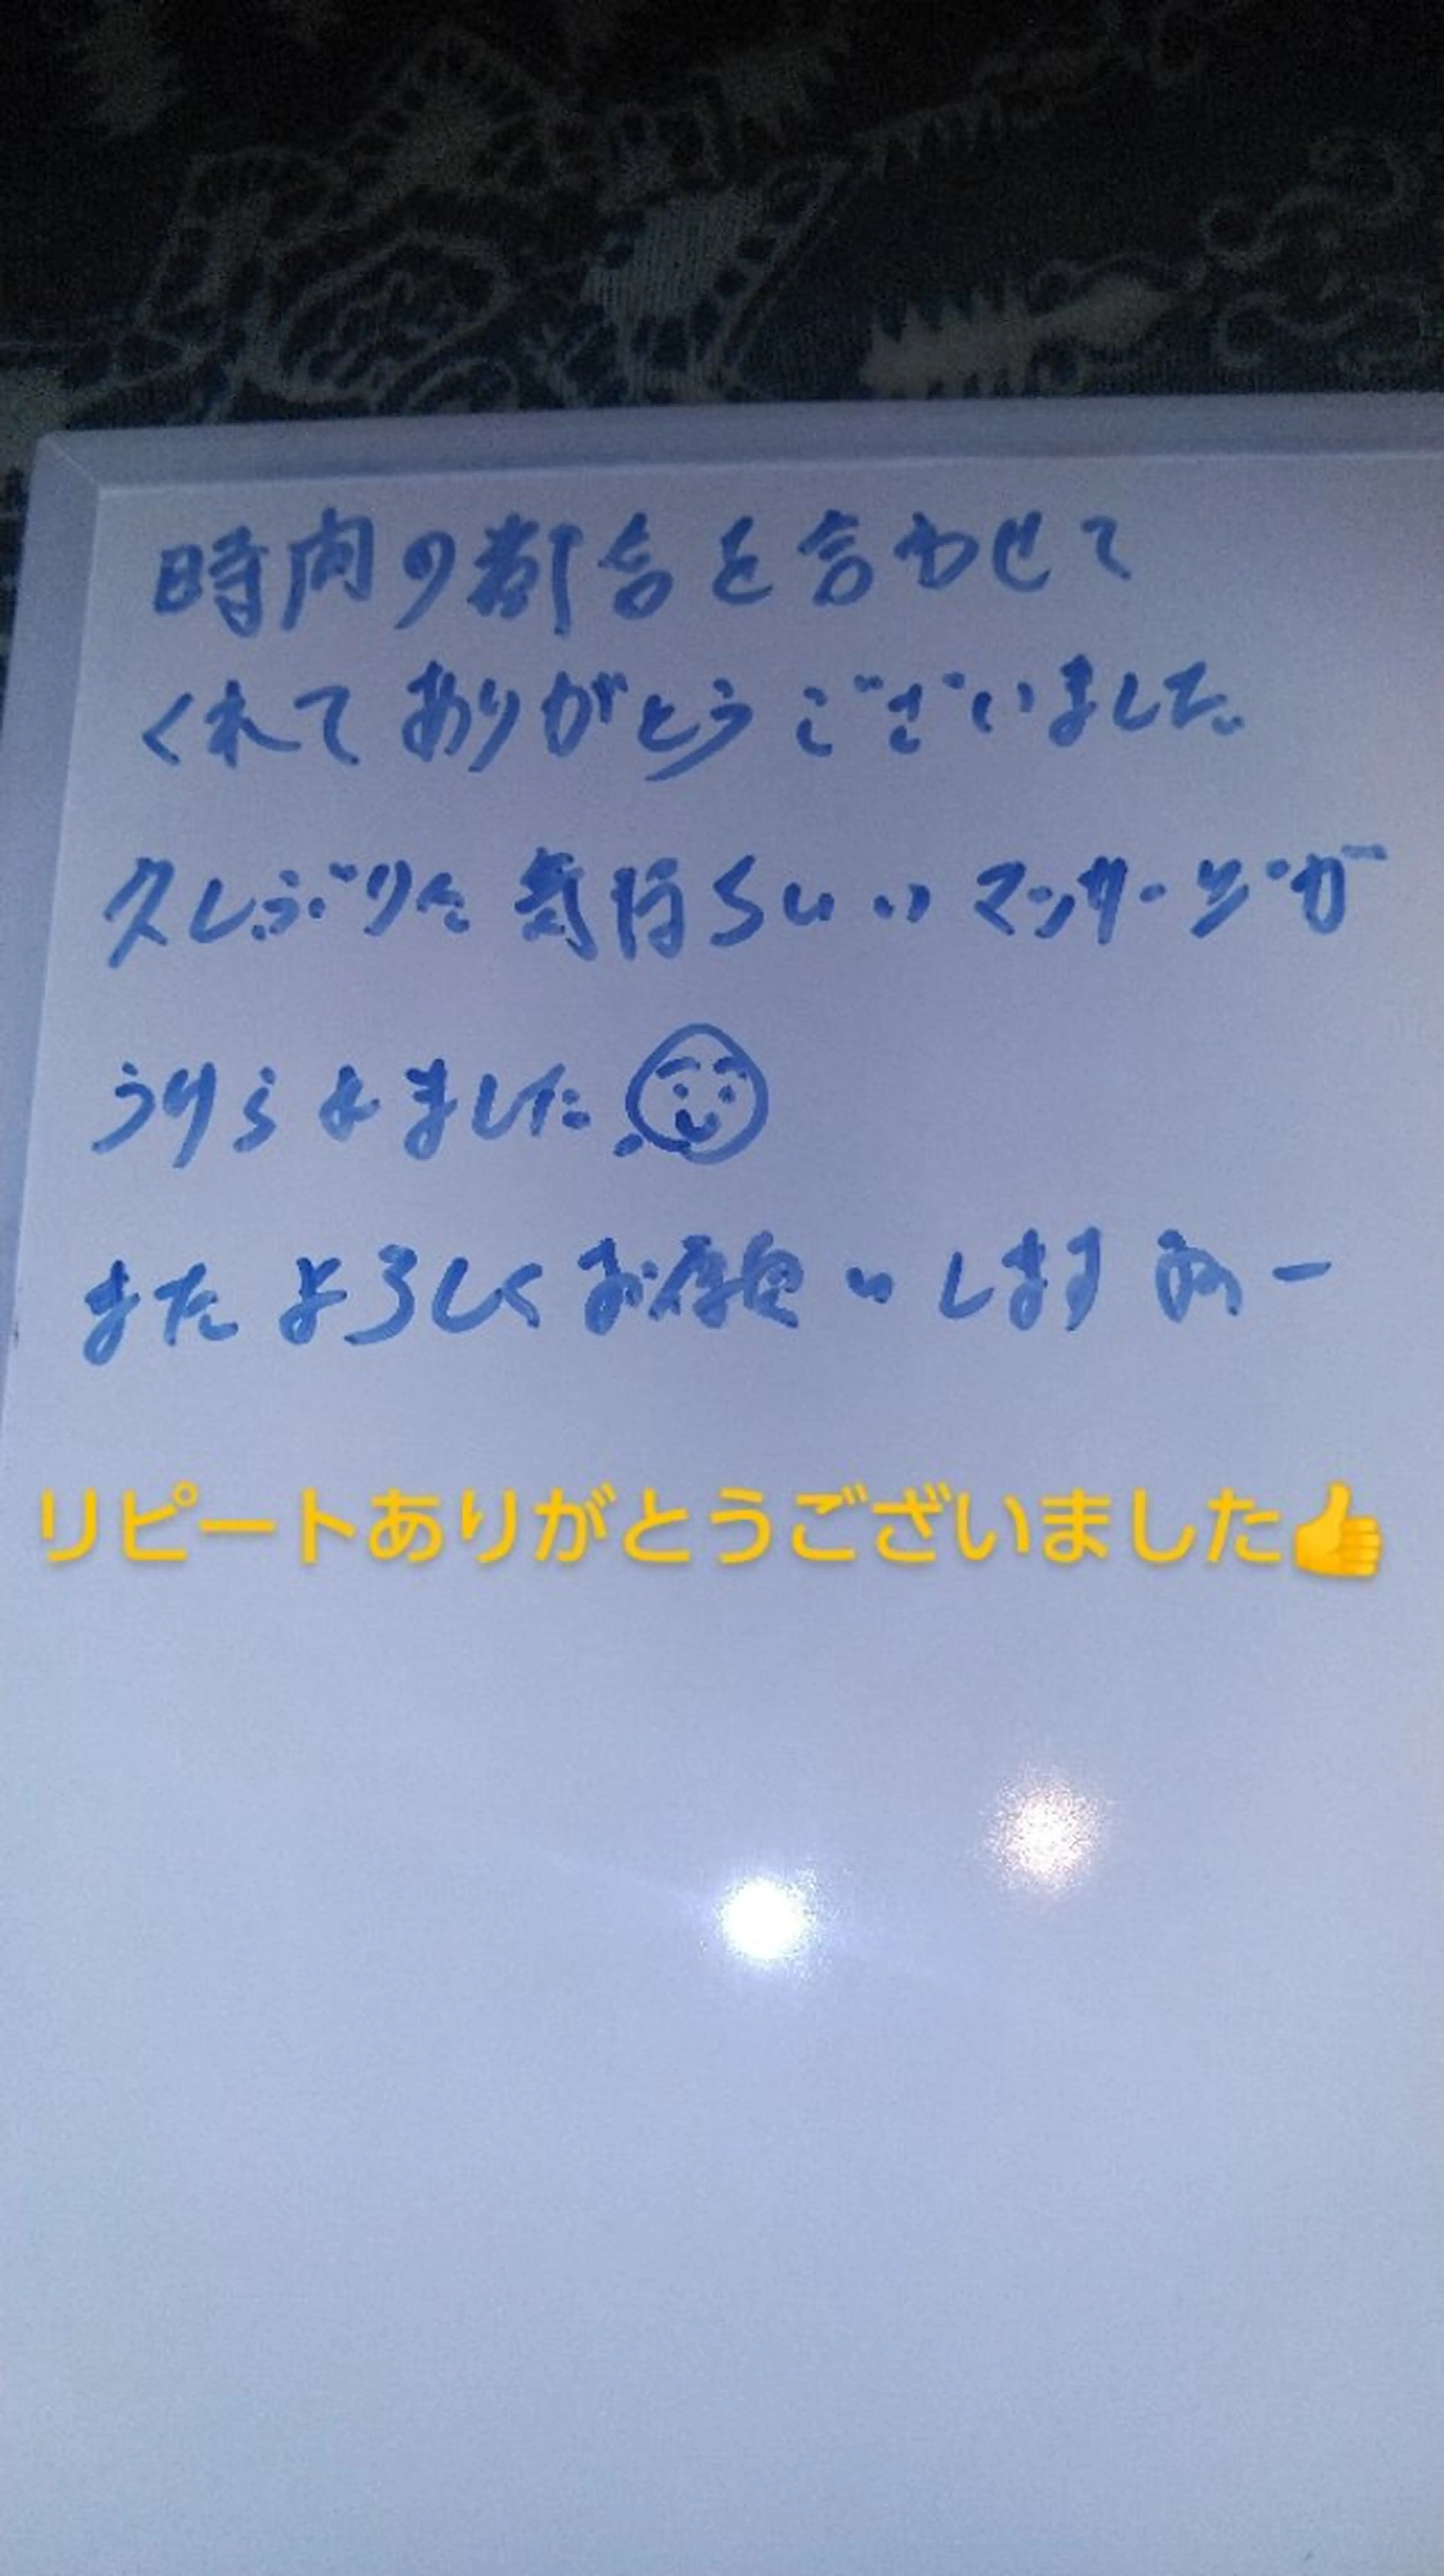 時間の都合を合わせて
くれてありがとうございました。
久しぶりに気持ちいいマッサージが
うけられました。
またよろしくお願いしますねー
リピートありがとうございました👍